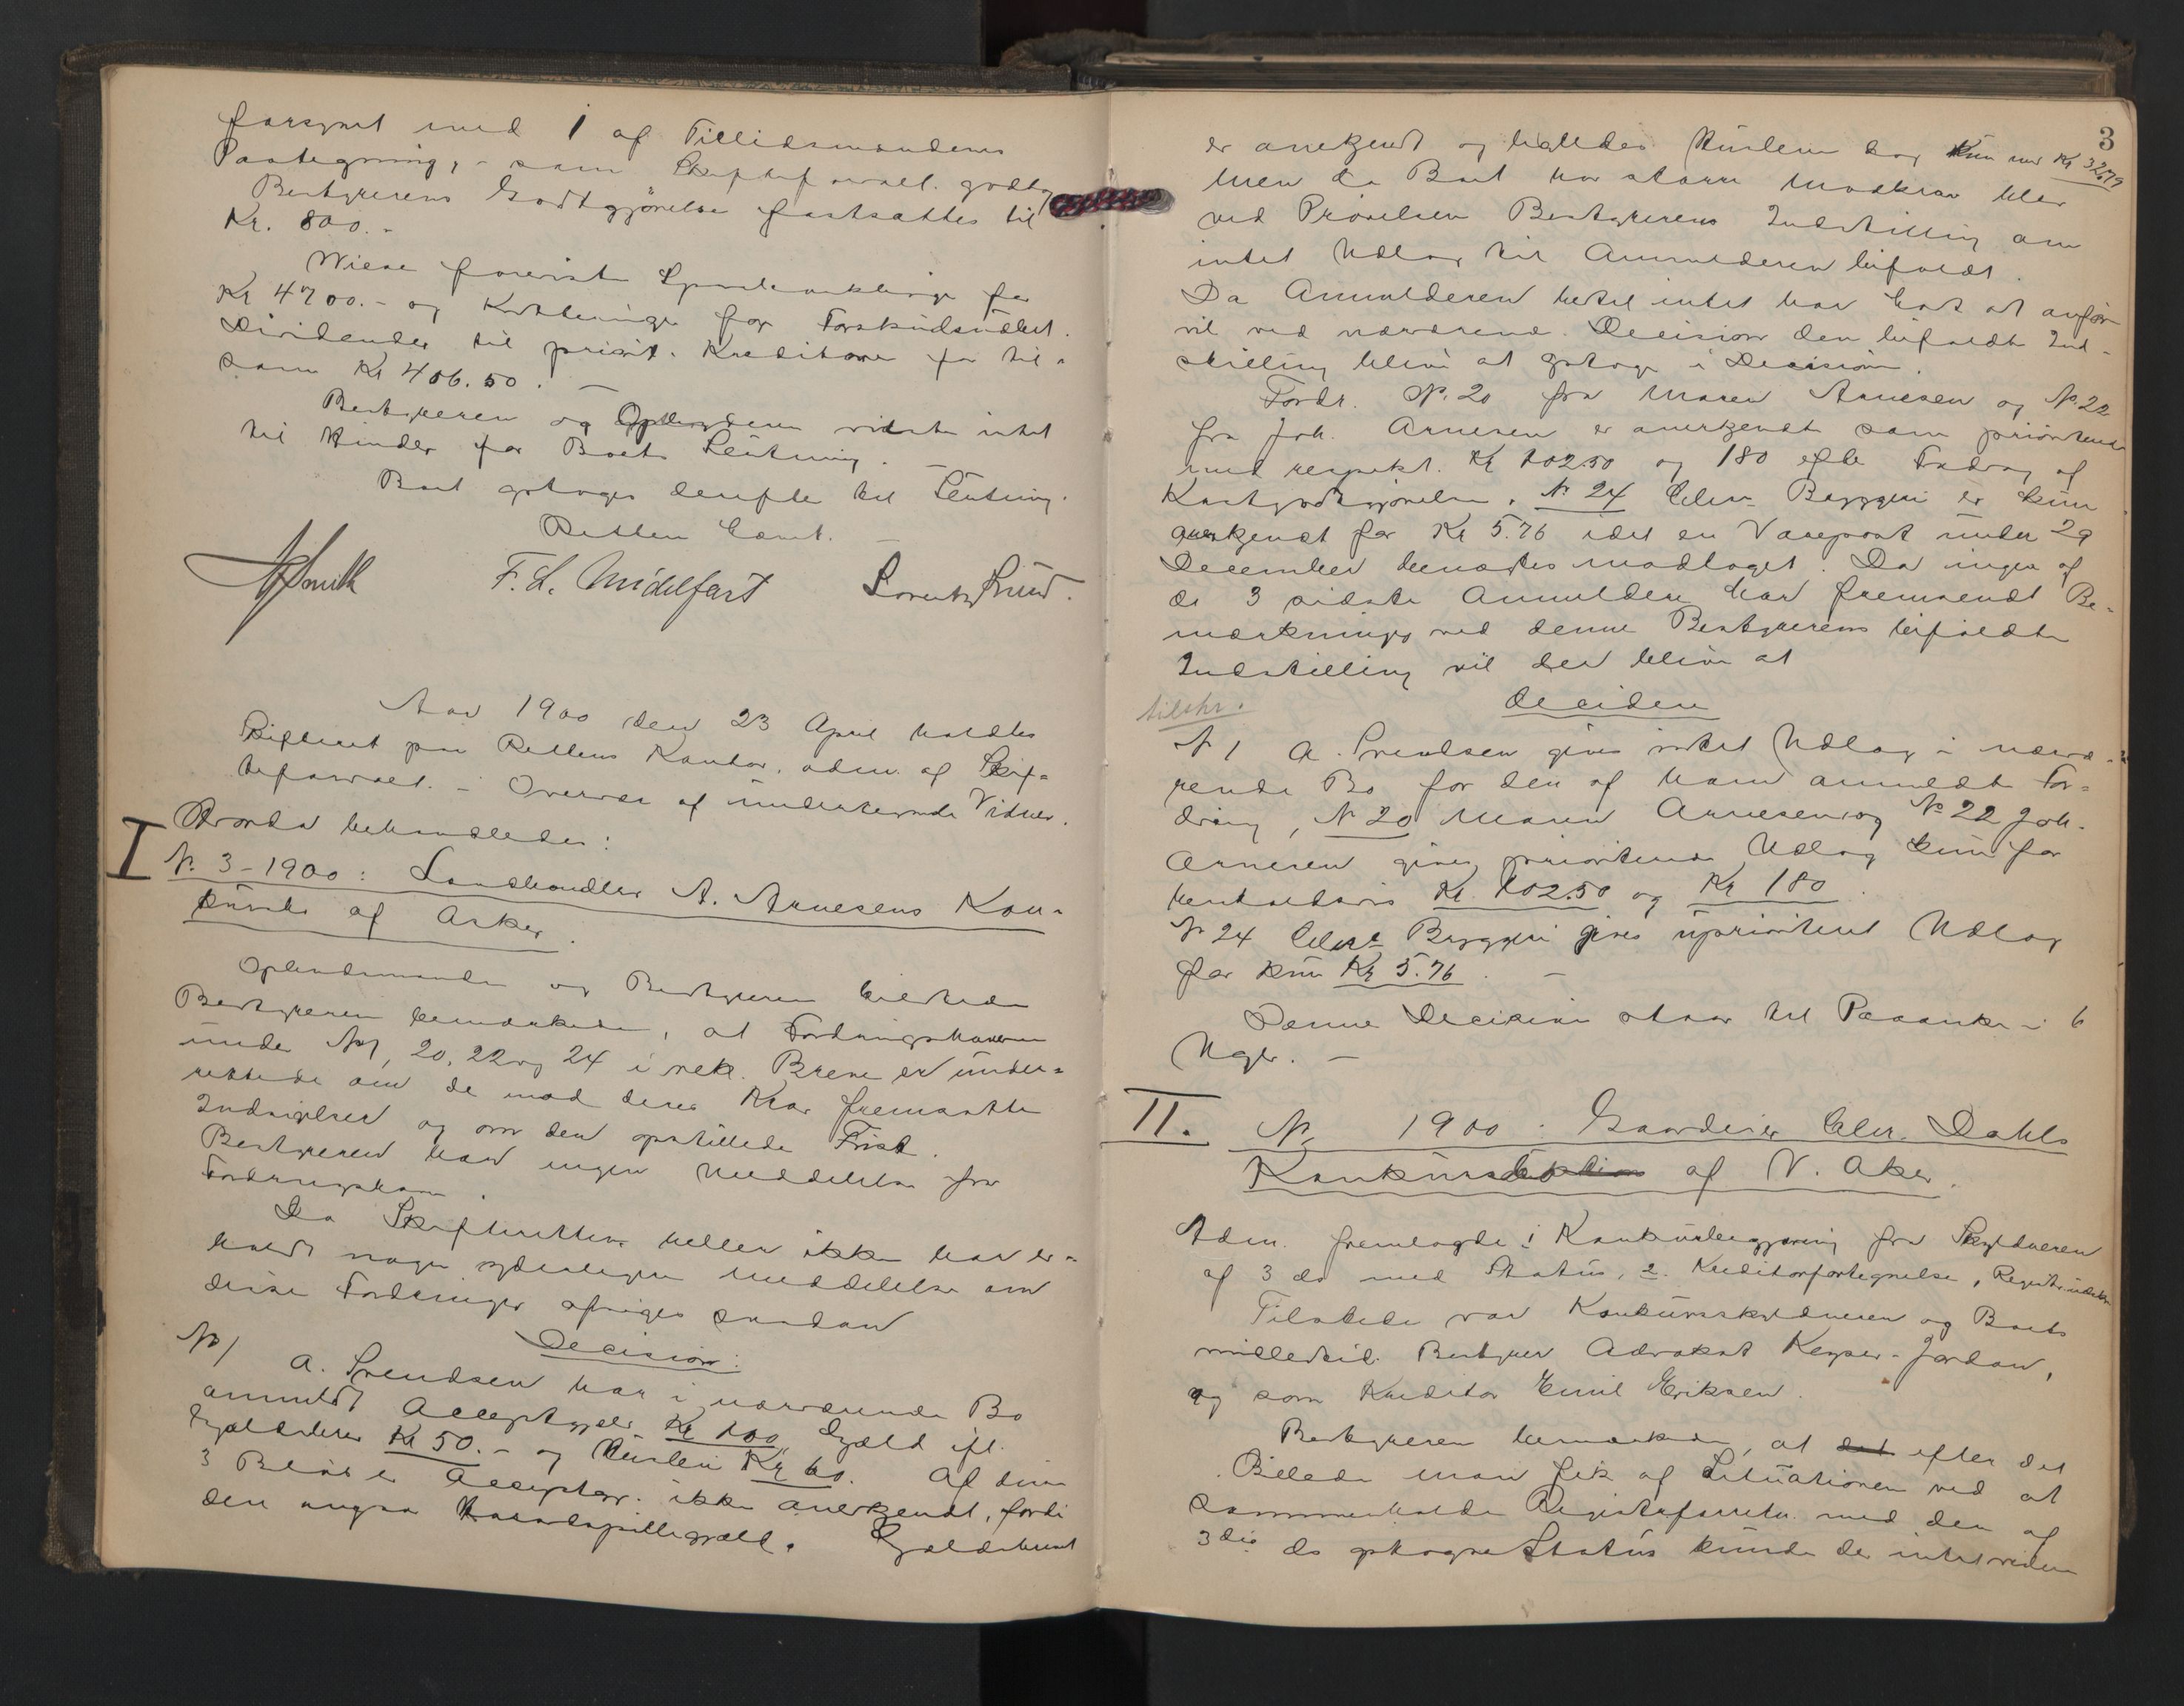 forsynet med 1 af Tillidsmandens
Paategning, - som Skifteforvalt. godtog
Bestyrerens Godtgjørelse fastsattes til
Kr. 800.-
Wiese foreviste for
Kr 4700.- og Kvitteringer for Forskudsudlæt.
Dividender til priorit. Kreditorer for til-
sam Kr 406.50. -
Bestyreren og Opbuderen vidste intet
til Hinder for Boets Slutning. -
Boet optages derefter til Slutning.
Retten hævet. -
F. L. Midelfart Lorentz Lund.
Aar 1900 den 23 April holdtes
Skifteret paa Rettens Kontor, adm. af Skif-
teforvalt. - Overvær af undertegnede Vidner.
Hvorda behandledes:
I
N. 3-1900: Landhandler A. Arnesens Kon-
kursbo af Asker.
og Bestyreren tilstede
Bestyreren bemærkede, at Fordringshaverne
under No 1, 20, 22 og 24 i rek. Breve er under-
rettede om de mod deres Krav fremsatte
Indsigelser og om den opstillede Frist.
Bestyreren har ingen Meddelelse fra
Fordringshav.
Da Skifteretten heller ikke har er-
holdt nogen yderligere Meddelelse om
disse Fordringer afsiges saadan
Decision:
No 1 A. Svendsen har i nærværende Bo
anmeldt Acceptgjæld Kr 100 Gjæld ifl.
Gjældsbrev Kr 50.- og Husleie Kr 60. Af disse
3 Beløb er Acceptgj. ikke anerkjendt, fordi
den angaar Gjældsbrevet
3
er anerkjendt og ligeledes Husleien dog kun med Kr 32.79
Men da Boet har større Modkrav blev
ved Prøvelsen Bestyrerens Indstilling om
intet Udlæg til Anmelderen bifaldt.
Da Anmelderen hertil intet har havt at anføre
vil ved nærværende Decision den bifaldte Ind-
stilling blive at optage i Decision.
Fordr. No. 20 fra Maren Arnesen og No. 22
fra Joh. Arnesen er anerkjendt som prioriterede
med respekt. Kr 102.50 og 180 efter Fradrag af
Kostgodtgjørelse. No 24 Bryggeri er kun
anerkjendt for Kr 5.76 idet en Varepost under 29
December benægtes modtaget. Da ingen af
de 3 sidste Anmeldere har fremsendt Be-
mærkninger ved denne Bestyrerens bifaldte
Indstilling vil der blive at
decidere
tilstr.
No 1 A. Svendsen gives intet Udlæg i nærvæ-
rende Bo for den af ham anmeldte For-
dring, No 20 Maren Arnesen og No 22 Joh.
Arnesen gives prioriteret Udlæg kun for
henholdsvis Kr. 102.50 og Kr 180.
No 24 Bryggeri gives uprioriteret Udlæg
for kun Kr 5.76. -
Denne Decision staar til Paaanke i 6
Uger. -
II. No 1900: Gaardeier Chr. Dahls
Konkursbo af V. Aker.
Adm. fremlagde 1 Konkursbegjæring fra Skyldneren
af 3 ds med Status, 2. Kreditorfortegnelse,
Tilstede var Konkursskyldneren og Boets
midlertid. Bestyrer Advokat Keyser-Jordan,
og som Kreditor Emil Eriksen.
Bestyreren bemærkede, at det efter det
Billede man fik af Situationen ved at
sammenholde Registerforretn. med den af
3die ds optagne Status kunde der intet videre